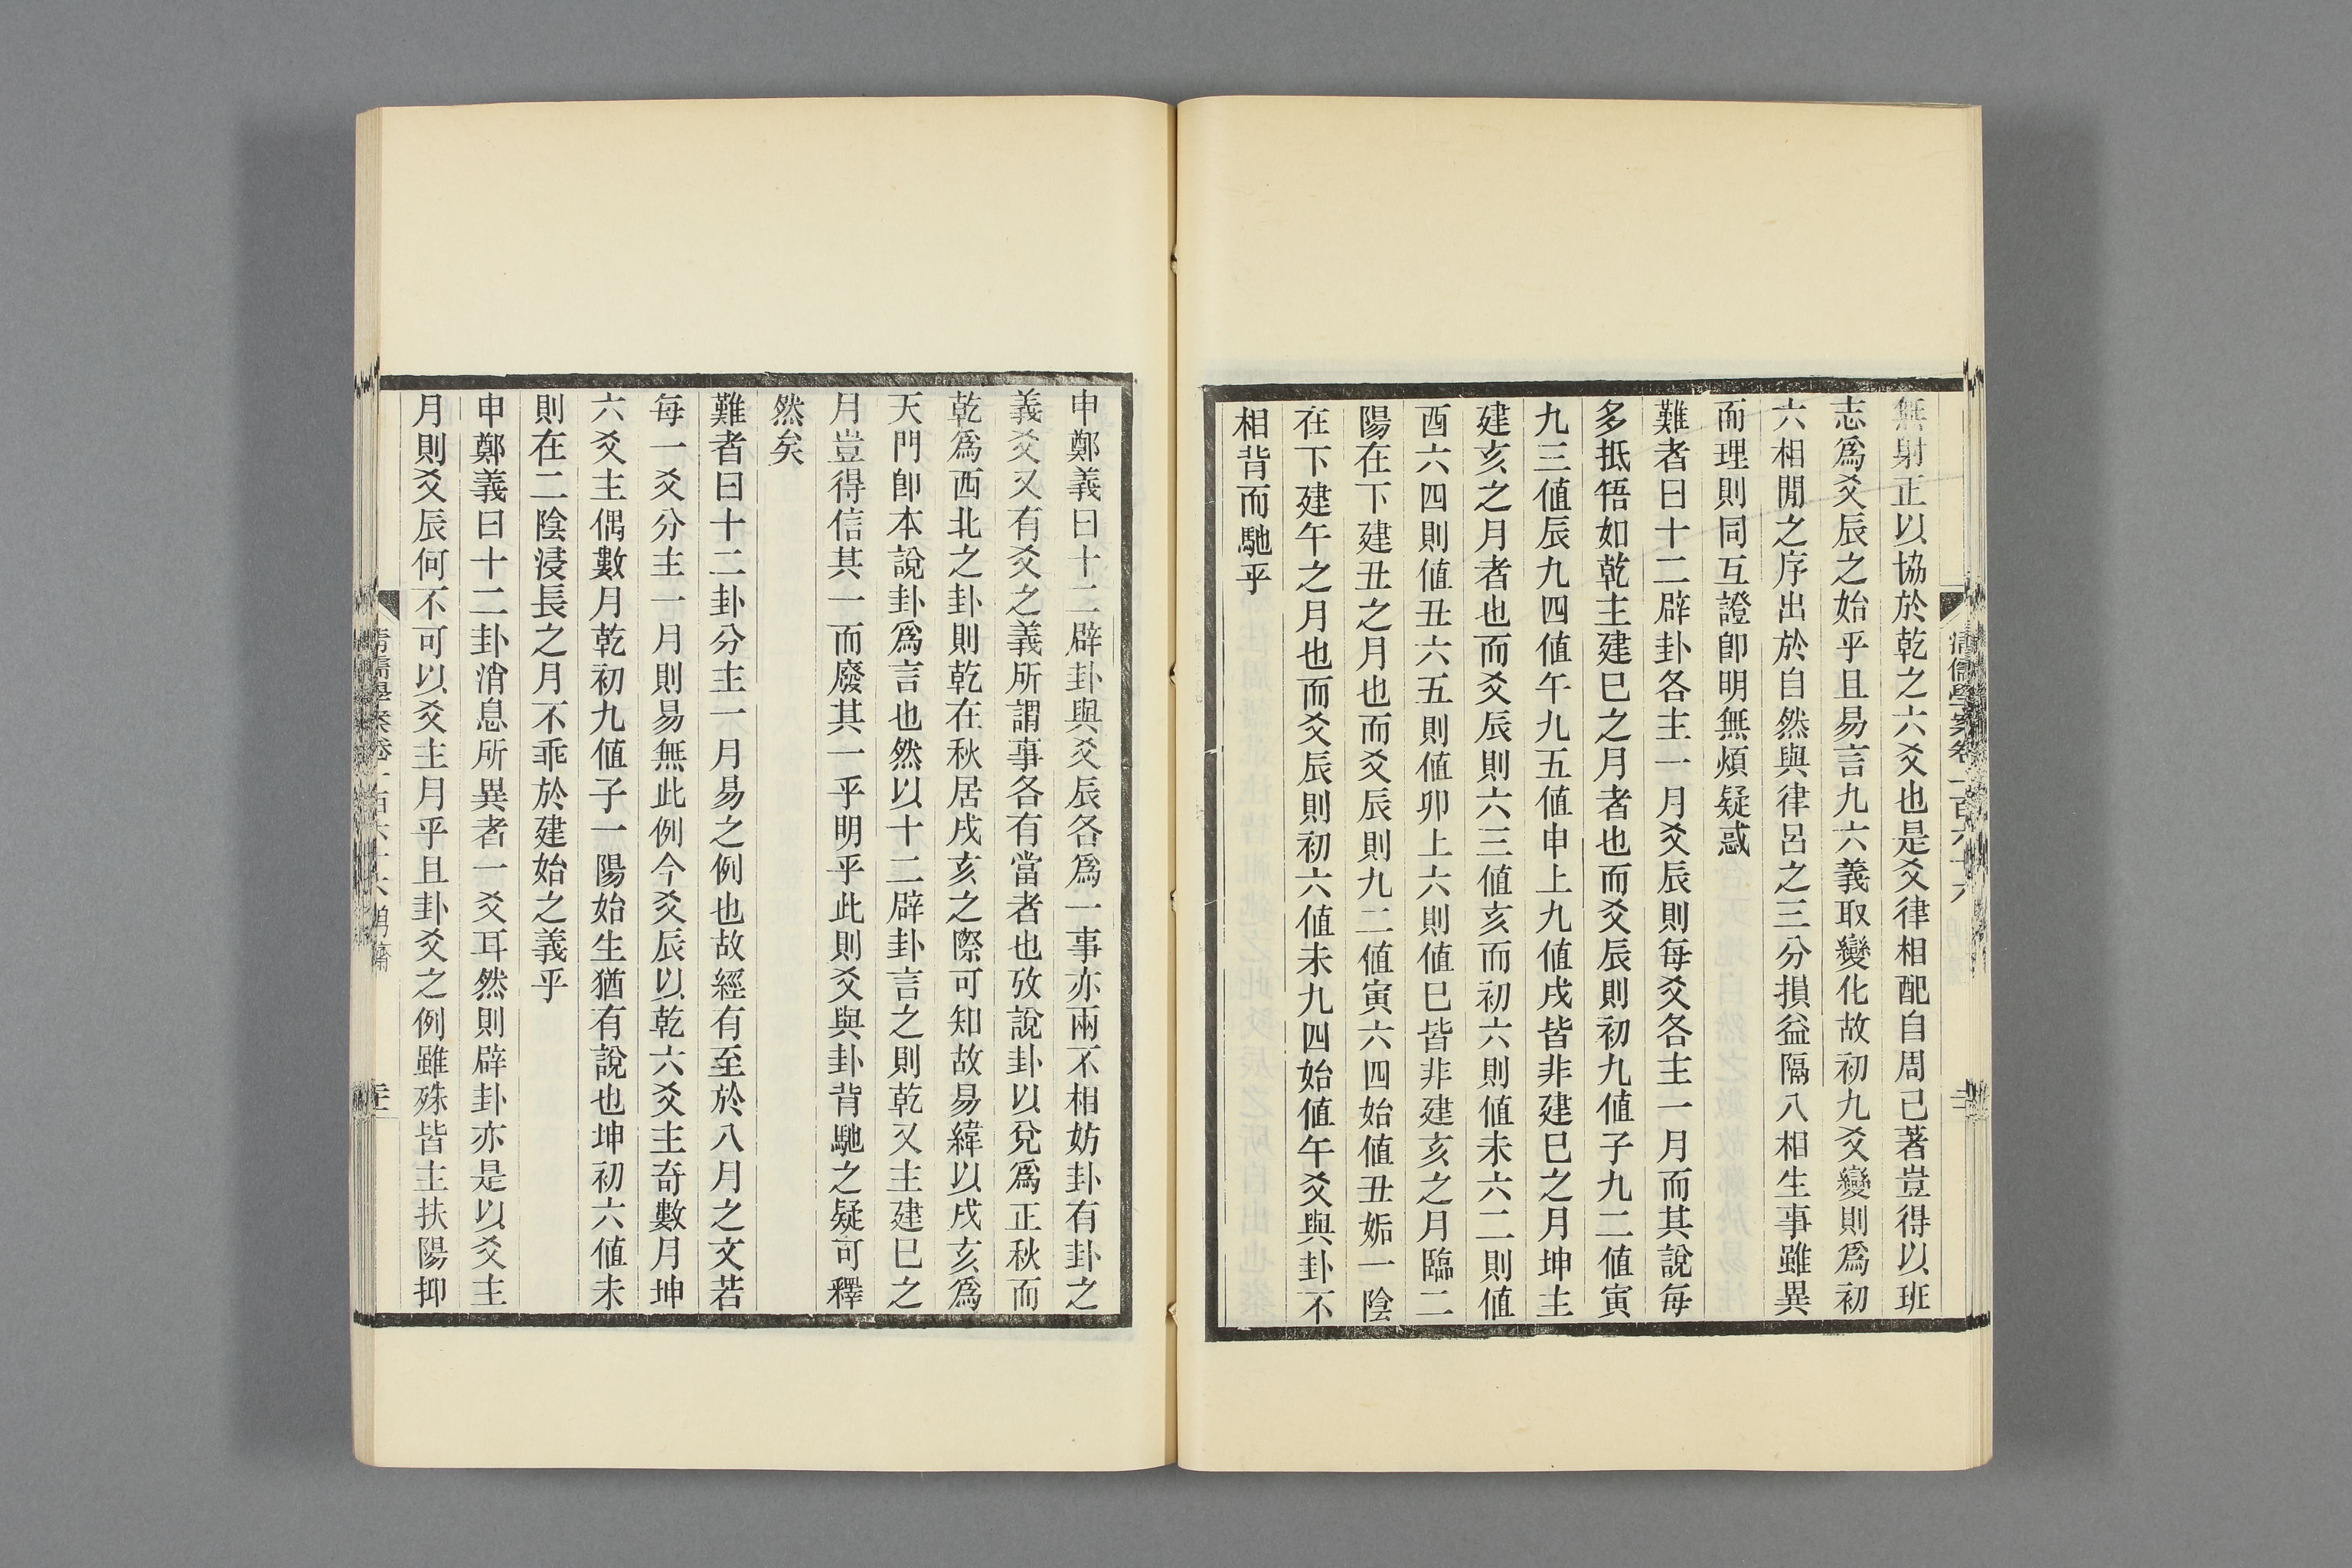 無射正以協於乾之六爻也是爻律相配自周已著豈得以班
志爲爻辰之始乎且易言九六義取變化故初九爻變則爲初
六相閒之序出於自然與律呂之三分損益隔八相生事雖異
而理則同互證卽明無煩疑惑
難者曰十二辟卦各主一月爻辰則每爻各主一月而其說每
多抵牾如乾主建巳之月者也而爻辰則初九値子九二値寅
九三値辰九四値午九五値申上九値戌皆非建巳之月坤主
建亥之月者也而爻辰則六三値亥而初六則値未六二則値
酉六四則値丑六五則値卯上六則値巳皆非建亥之月臨二
陽在下建丑之月也而爻辰則九二値寅六四始値丑姤一陰
在下建午之月也而爻辰則初六値未九四始値午爻與卦不
相背而馳乎
申鄭義曰十二辟卦與爻辰各爲一事亦兩不相妨卦有卦之
義爻又有爻之義所謂事各有當者也攷說卦以兌爲正秋而
乾爲西北之卦則乾在秋居戌亥之際可知故易緯以戌亥爲
天門卽本說卦爲言也然以十二辟卦言之則乾又主建巳之
月豈得信其一而廢其一乎明乎此則爻與卦背馳之疑可釋
然矣
難者曰十二卦分主一月易之例也故經有至於八月之文若
每一爻分主一月則易無此例今爻辰以乾六爻主奇數月坤
六爻主偶數月乾初九値子一陽始生猶有說也坤初六値未
則在二陰浸長之月不乖於建始之義乎
申鄭義曰十二卦消息所異者一爻耳然則辟卦亦是以爻主
月則爻辰何不可以爻主月乎且卦爻之例雖殊皆主扶陽抑